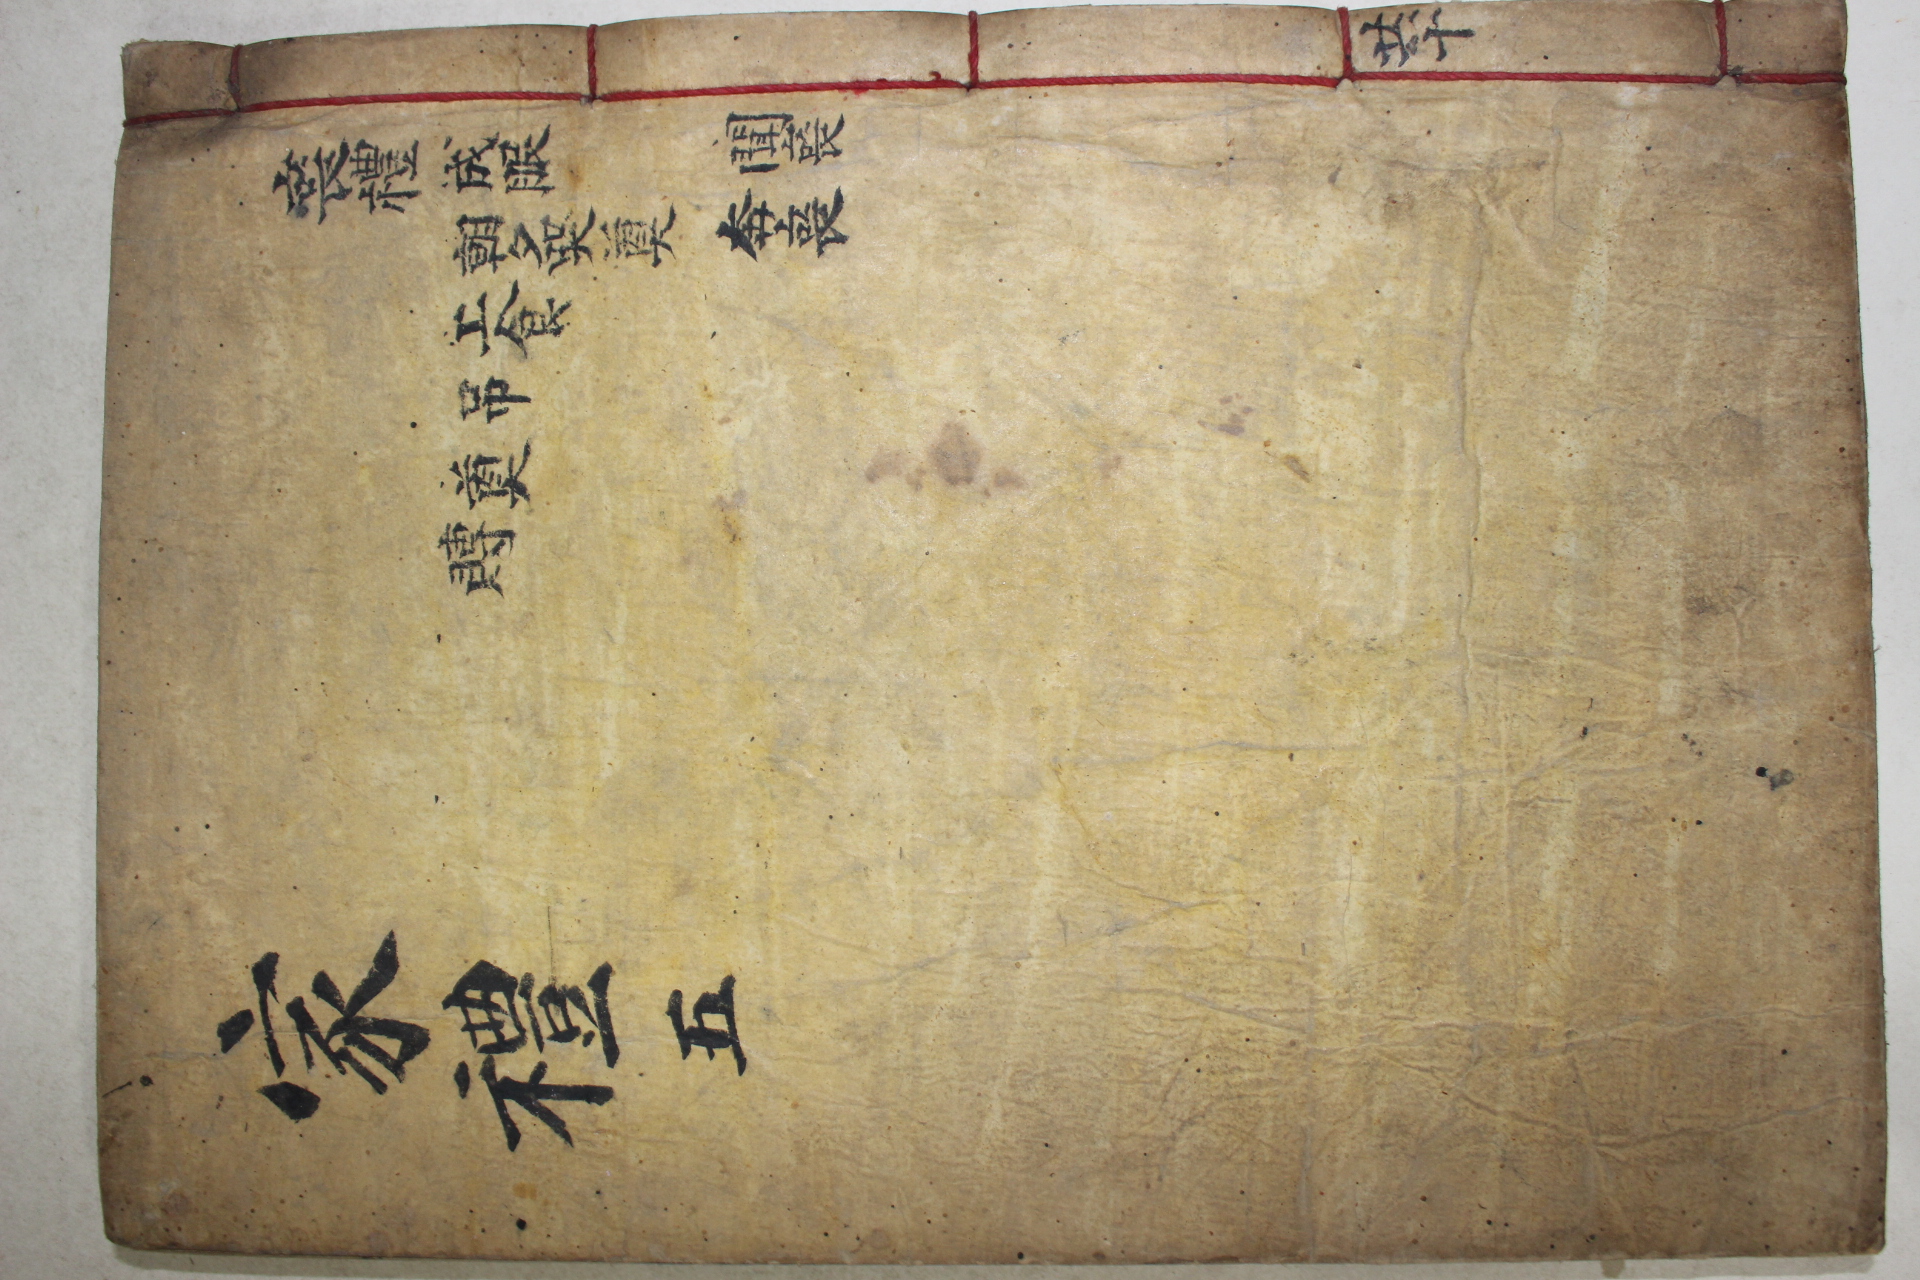 喪禮
成服
朝夕哭奠
上食
吊
奠
賻
聞喪
奔喪
家禮 五
共十